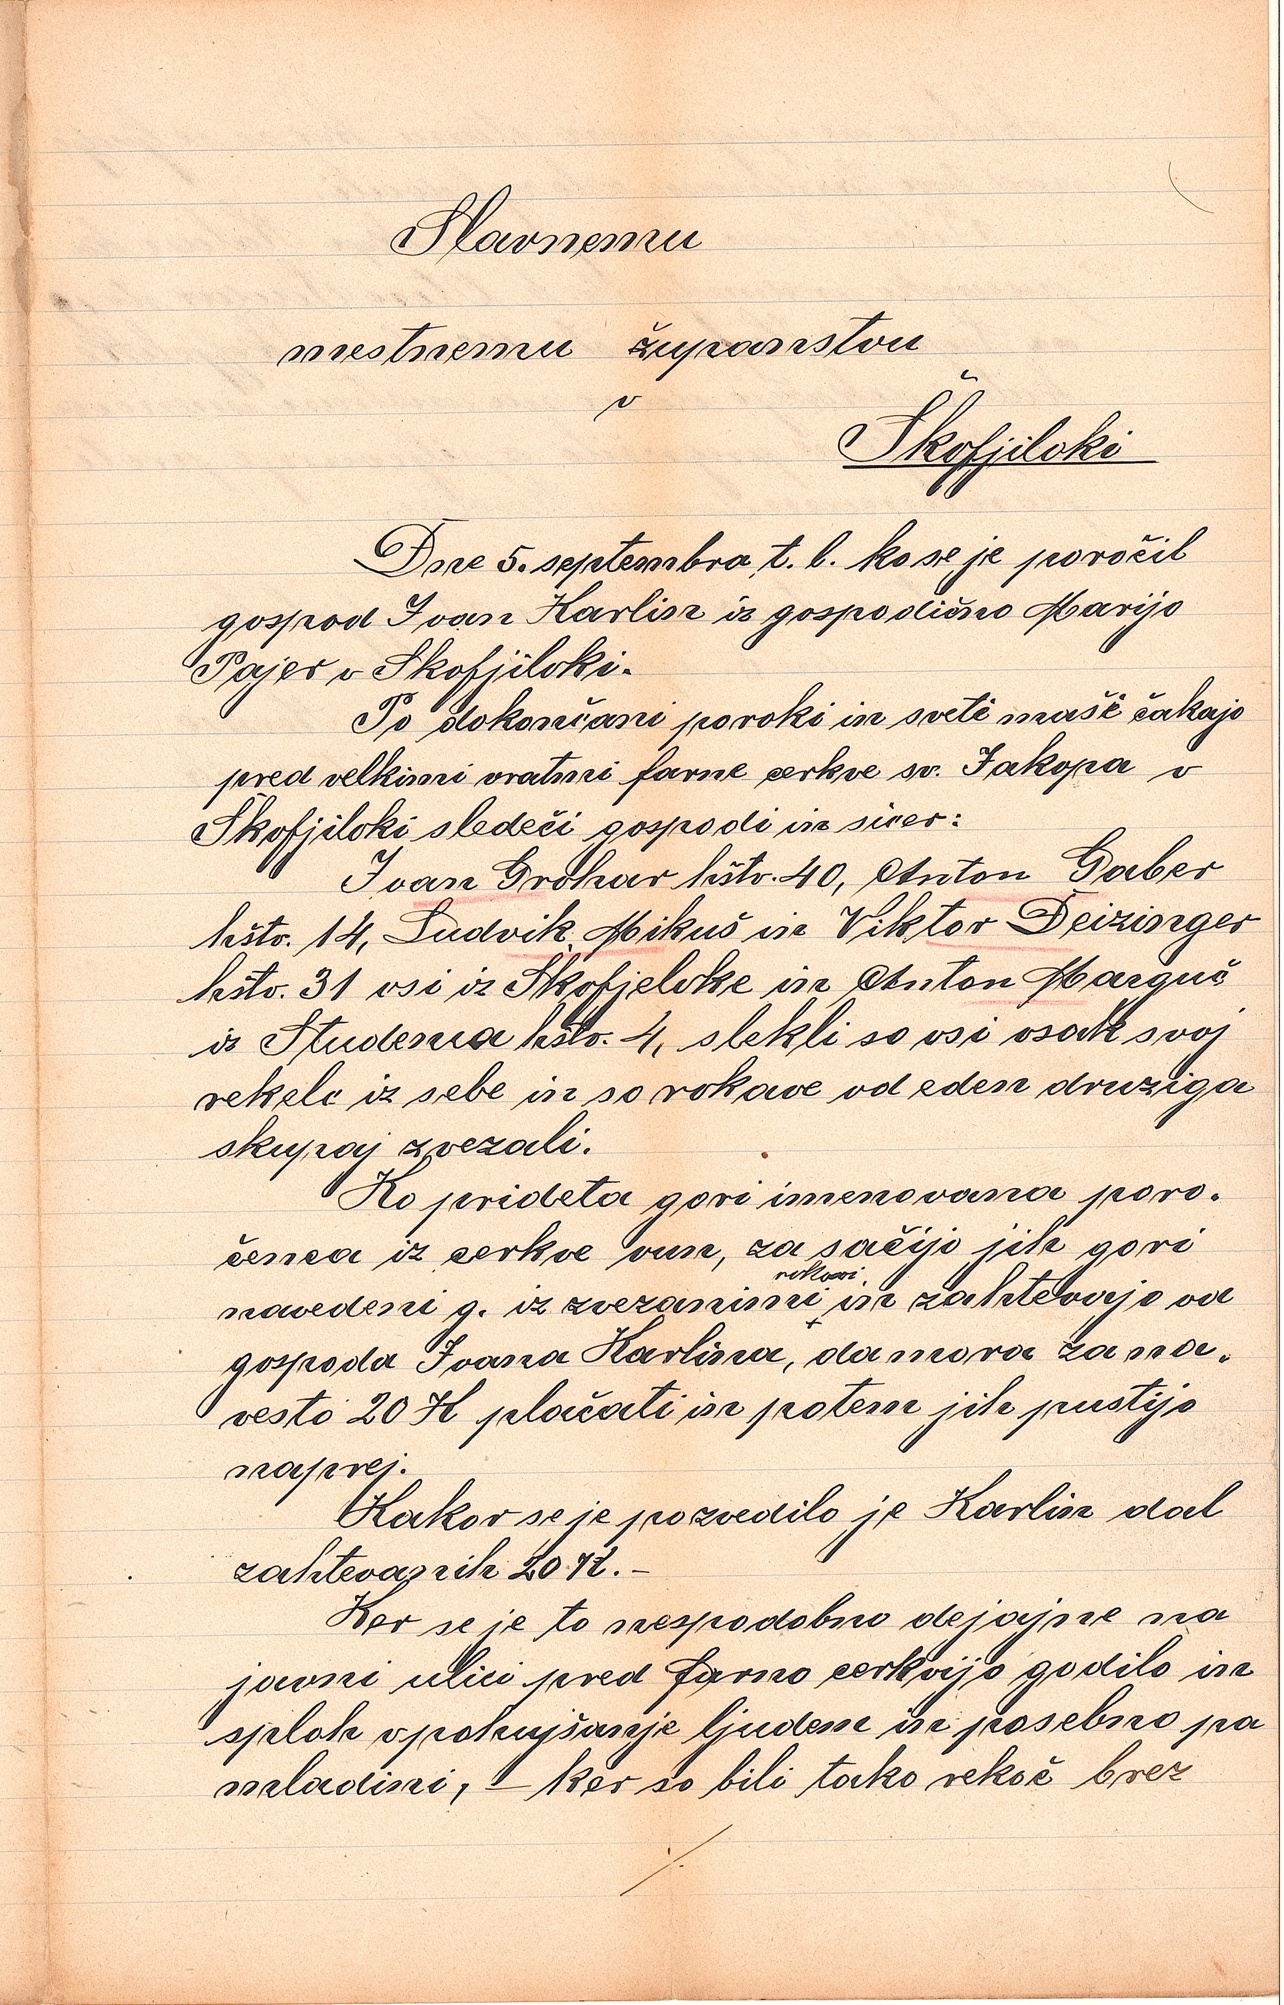 Slavnemu
mestnemu županstvu
v
Škofjiloki
Dne 5. septembra t. l. ko se je poročil
gospod Ivan Karlin iz gospodično Marijo
Pajer v Skofjiloki.
Po dokončani poroki in sveti maši čakajo
pred velkimi vratmi farne cerkve sv. Jakopa v
Škofjiloki sledeči gospodi in sicer:
Ivan Grohar hštv. 40, Anton Gaber
hštv. 14, Ludvik Mikuš in Viktor Deizinger
hštv. 31 vsi iz Škofjeloke in Anton Marguč
iz Studenca hštv. 4, slekli so vsi vsak svoj
rekelc iz sebe in so rokave od eden druziga
skupaj zvezali.
Ko prideta gori imenovana poro.
čenca iz cerkve vun, za sačijo jih gori
navedeni g. iz zvezanimi rokavi in zahtevajo od
gospoda Ivana Karlina, da mora za na.
vesto 20 K plačati in potem jih pustijo
naprej.
Kakor se je pozvedilo je Karlin dal
zahtevanih 20 K. –
Ker se je to nespodobno dejajne na
javni ulici pred farno cerkvijo godilo in
sploh v pohujšanje ljudem in posebno pa
mladini, – ker so bili tako rekoč brez
./.